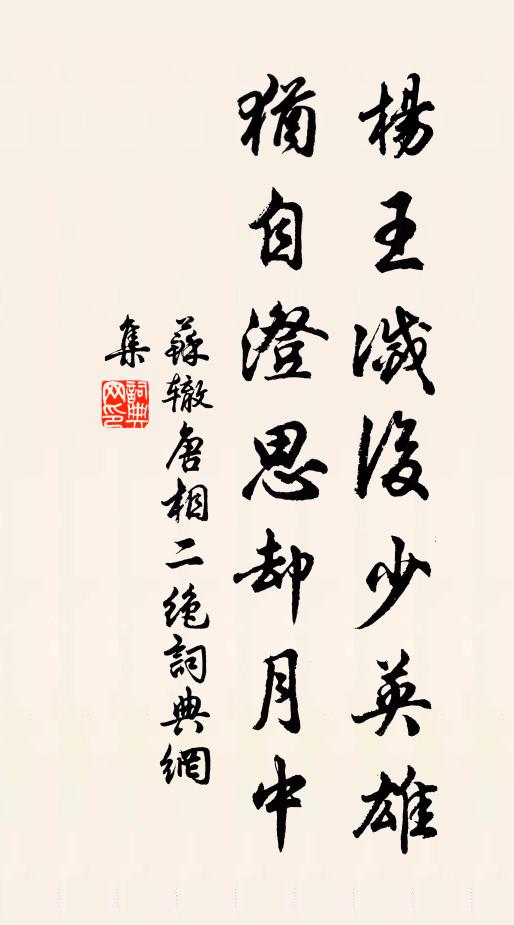 楊王滅後少英雄
猶自澄思却月中
蘇辙唐相二绝詞典網
集
詞典網印